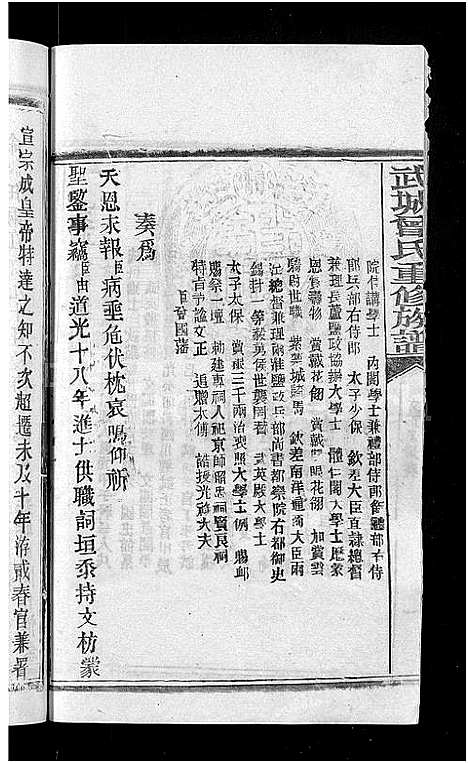 武城曾氏重修族譜
院侍講學士　內閣學士兼禮部侍郎
郎兵部右侍郎　太子少保　欽差大臣直隸總督
兼理長蘆鹽政協辦大學士　體仁閣大學士歷蒙
恩賞　賞戴花翎　賞戴雙眼花翎　加賞雲
騎尉世職　紫禁城騎馬　欽差南洋通商大臣兩
江總督兼理兩淮鹽政兵部尚書都察院右都御史
錫封一等毅勇侯世襲罔替　武英殿大學士
太子太保　賞銀三千兩治喪照大學士例　賜卹
賜祭一壇　敕建專祠入祀京師昭忠祠賢良祠
特旨予諡文正　追贈太傅　誥授光祿大夫
臣曾國藩
奏爲
天恩未報臣病垂危伏枕哀鳴仰祈
聖鑒事竊臣由道光十八年進士供職詞垣忝持文枋蒙
宣宗成皇帝特達之知不次超遷未及十年洊戒春官兼署